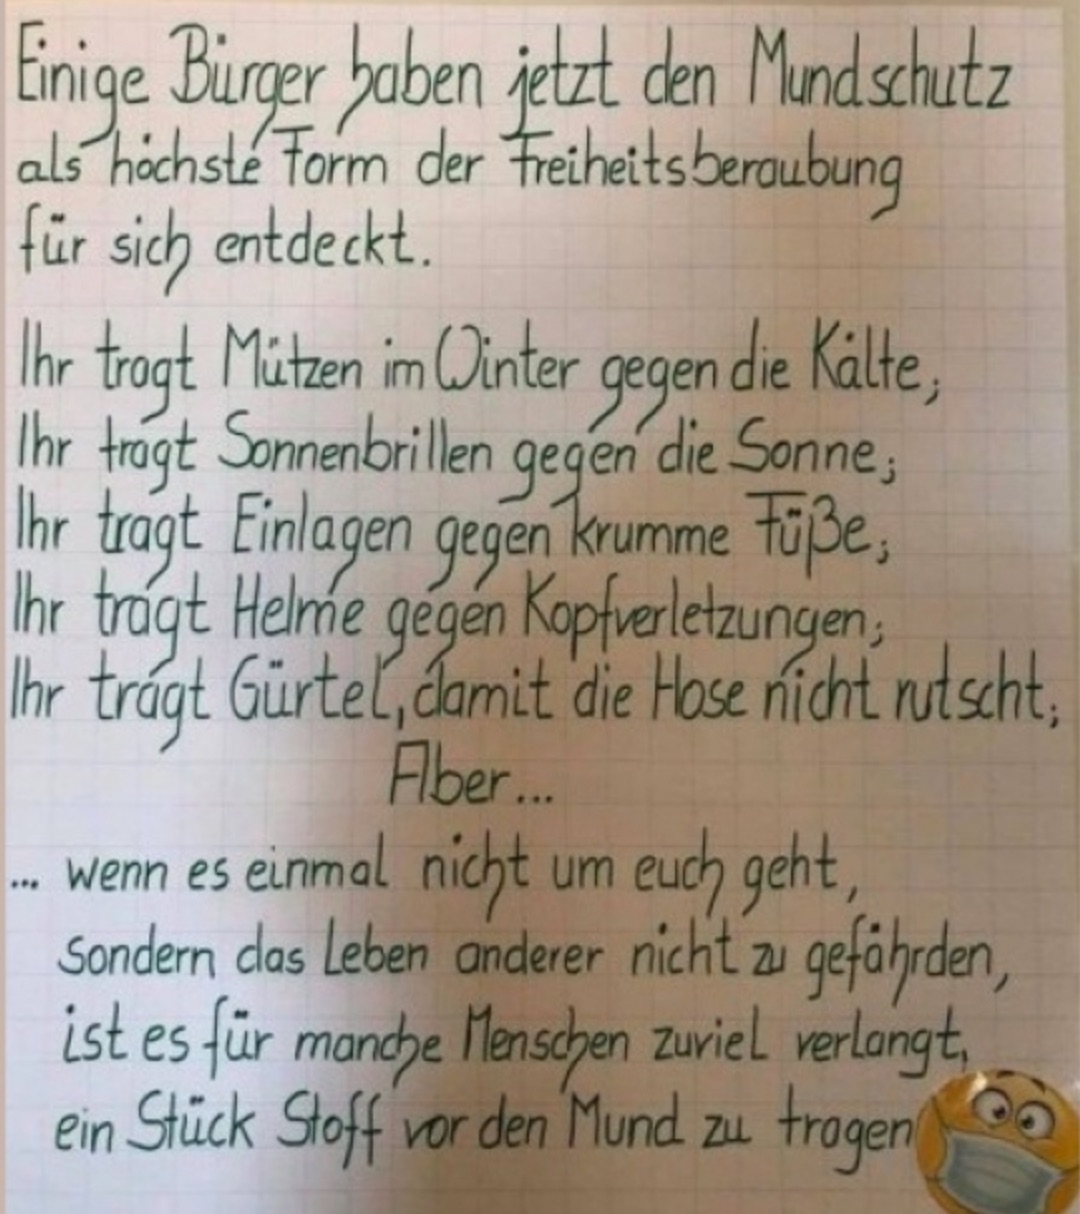 Einige Bürger haben jetzt den Mundschutz
als höchste Form der Freiheitsberaubung
für sich entdeckt.
Ihr tragt Mützen im Winter gegen die Kälte;
Ihr tragt Sonnenbrillen gegen die Sonne;
Ihr tragt Einlagen gegen krumme Füße;
Ihr tragt Helme gegen Kopfverletzungen;
Ihr tragt Gürtel, damit die Hose nicht rutscht;
Aber...
... wenn es einmal nicht um euch geht,
sondern das Leben anderer nicht zu gefährden,
ist es für manche Menschen zuviel verlangt,
ein Stück Stoff vor den Mund zu tragen